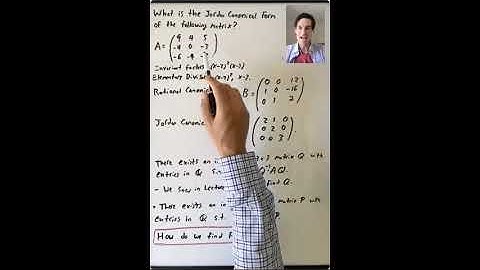 What is the Jordan Canonical Form
of the following matrix?
A = ( 9 4 5
-4 0 -3
-6 -4 -2 )
Invariant factors: (x-2)²(x-3)
Elementary Divisors (x-2)², x-3.
Rational Canonical B = ( 0 0 12
1 0 -16
0 1 7 )
Jordan Canonical ( 2 1 0
0 2 0
0 0 3 ).
There exists an in 3 matrix Q with
entries in ℚ s.t. Q⁻¹AQ.
- We saw in Lecture find Q.
• There exists an in matrix P with
entries in ℚ s.t. P
How do we find P